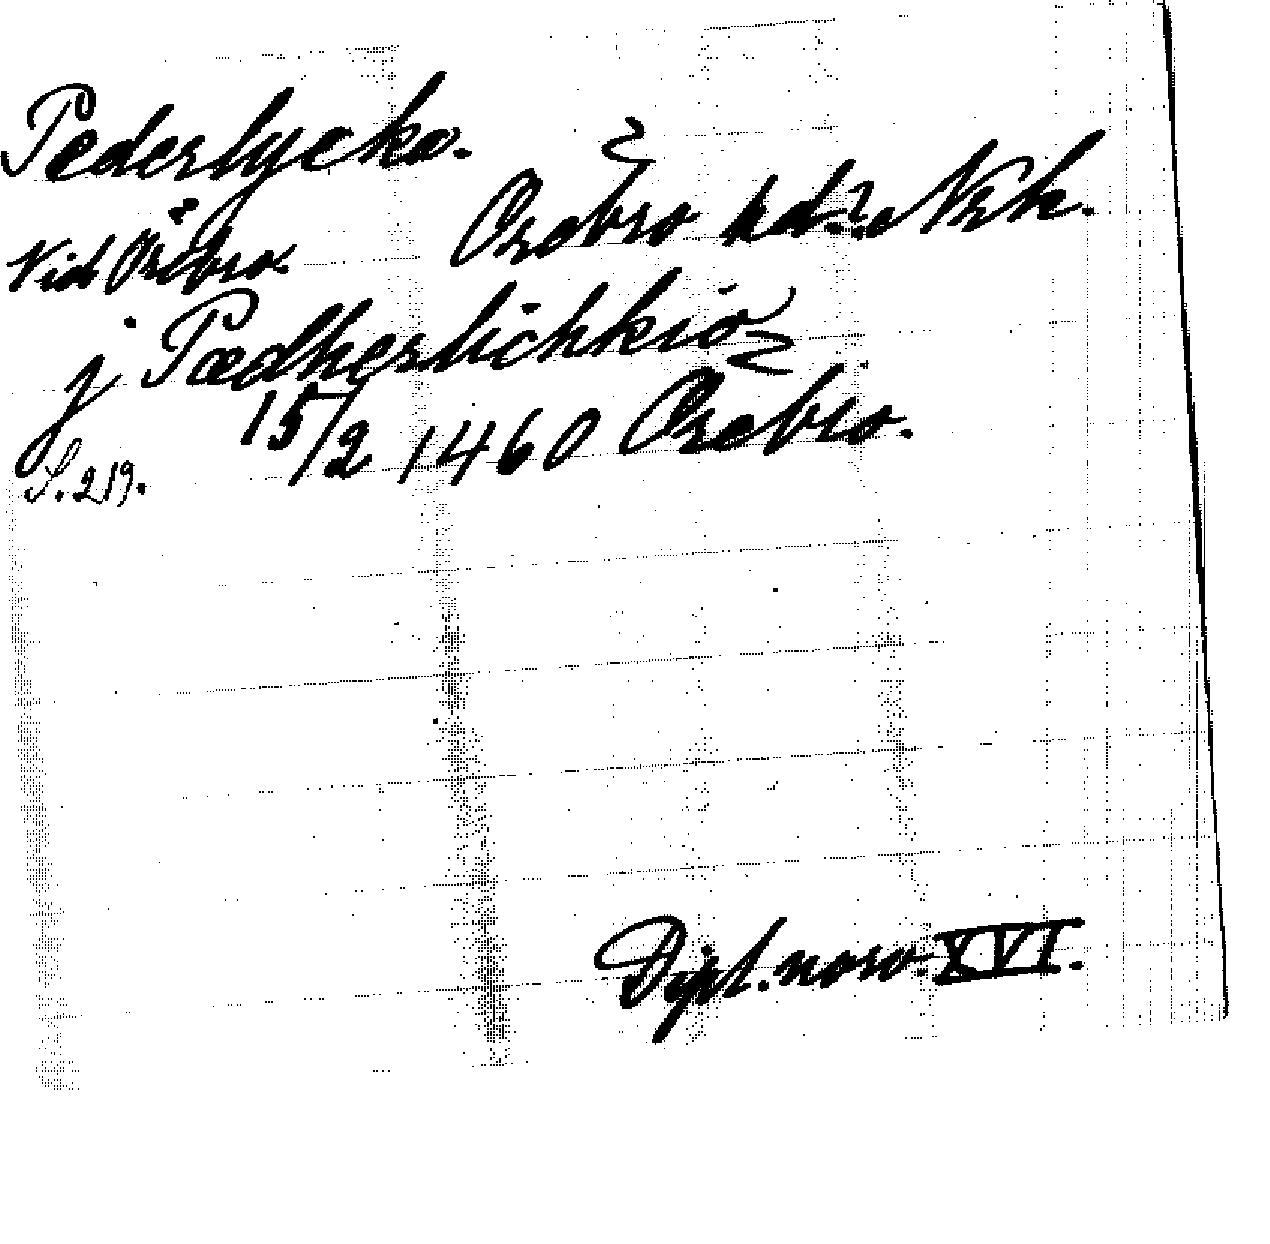 Pederlycka.
Vid Örebro. Örebro hd.? Nrk.
j Pædherlichkiö
15/2 1460 Örebro.
S. 219.
Dipl. norv. XVI.